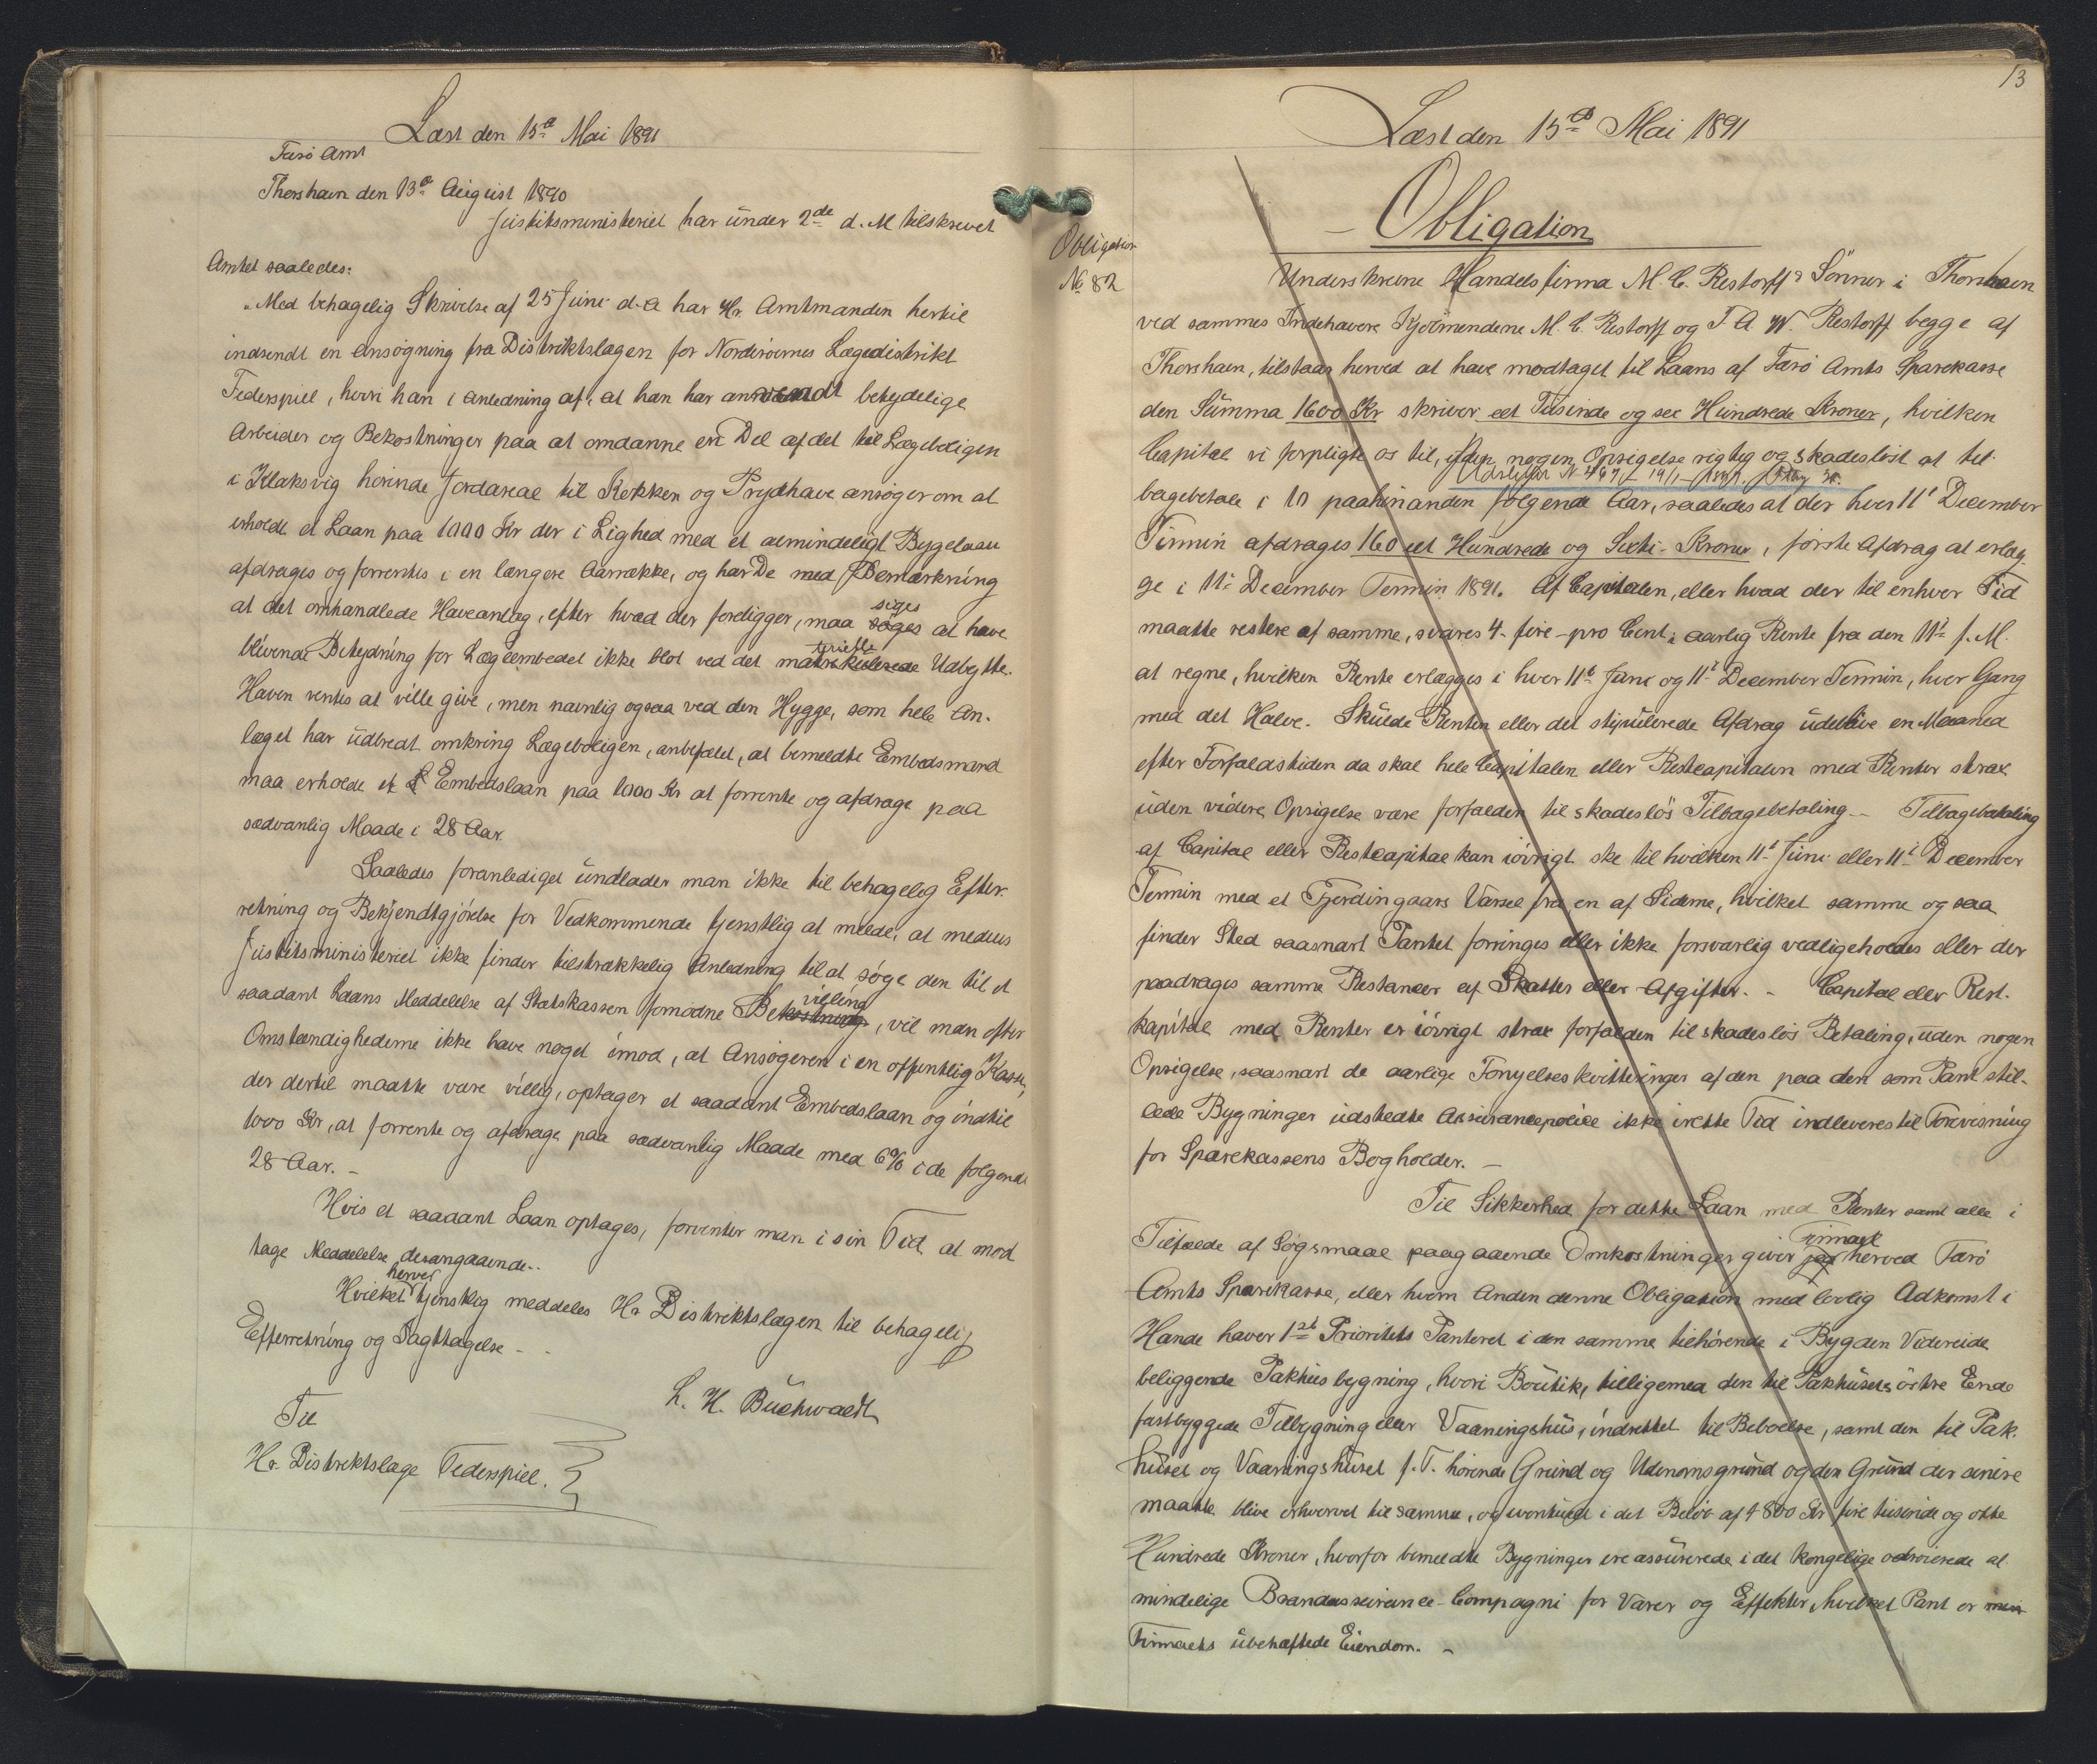 Læst den 15de Mai 1891
Færö Amt
Thorshavn den 13de August 1890
Justitsministeriet har under 2de d. M tilskrevet
Amtet saaledes:
„Med behagelig Skrivelse af 25 Juni d.A har Hr. Amtmanden hertil
indsendt en Ansøgning fra Distriktslægen for Nordrøernes Lægedistrikt
Federspiel, hvori han i Anledning af, at han har anvendt betydelige
Arbeider og Bekostninger paa at omdanne en Del af det til Lægeboligen
i Klaksvig hörende Jordareal til Kjøkken og Prydhave ansøger om at
erholde et Laan paa 1000 Kr der i Lighed med et almindeligt Bygelaan
afdrages og forrentes i en længere Aarrække, og har De med Bemærkning
at det omhandlede Haveanlæg, efter hvad der foreligger, maa søges siges at have
blivende Betydning for Lægeembedet ikke blot ved det materielle Udbytte.
Haven ventes at ville give, men navnlig ogsaa ved den Hygge, som hele An-
læget har udbredt omkring Lægeboligen, anbefalet, at bemeldte Embedsmand
maa erholde et Embedslaan paa 1000 Kr at forrente og afdrage paa
sædvanlig Maade i 28 Aar.
Saaledes foranlediget undlader man ikke til behagelig Efter-
retning og Bekjendtgjörelse for Vedkommende tjenstlig at melde, at medens
Justitsministeriet ikke finder tilstrækkelig Anledning til at søge den til et
saadant Laans Meddelelse af Statskassen fornødne Bekostning villing, vil man efter
Omstændighederne ikke have noget imod, at Ansøgeren i en offentlig Kasse,
der dertil maatte være villig, optager et saadant Embedslaan og indtil
1000 Kr, at forrente og afdrage paa sædvanlig Maade med 6% i de følgende
28 Aar. –
Hvis et saadant Laan optages, forventer man i sin Tid at mod
tage Meddelelse desangaaende..
Hvilket herved tjenstlig meddeles Hr Distriktslægen til behagelig
Efterretning og Iagttagelse –
L. H. Buchwaldt
Til
Hr. Distriktslæge Federspiel.
13
Læst den 15de Mai 1891
Obligation
Obligation
№ 82
Underskrevne Handelsfirma M. C. Restorffs Sönner i Thorshavn
ved sammes Indehavere Kjöbmendene M. C. Restorff og T A W. Restorff begge af
Thorshavn, tilstaar herved at have modtaget til Laans af Færö Amts Sparekasse
den Summa 1600 Kr skriver eet Tusinde og sex Hundrede Kroner, hvilken
Capital vi forpligte os til, uden nogen Opsigelse rigtig og skadeslöst at til-
Udslettet N 467
bagebetale i 10 paahinanden følgende Aar, saaledes at der hver 11te December
Termin afdrages 160 eet Hundrede og Sexti-Kroner, förste Afdrag at erlæg
ge i 11te December Termin 1891. Af Capitalen, eller hvad der til enhver Tid
maatte restere af samme, svares 4 - fire - pro Cent i aarlig Rente fra den 11te f. M.
at regne, hvilken Rente erlægges i hver 11te Juni og 11te December Termin, hver Gang
med det Halve. Skulde Renten eller det stipulerede Afdrag udeblive en Maaned
efter Forfaldstiden da skal hele Capitalen eller Restcapitalen med Renter strax
uden videre Opsigelse være forfalden til skadeslös Tilbagebetaling – Tilbagebetaling
af Capital eller Restcapital kan iövrigt ske til hvilken 11te Juni eller 11te December
Termin med et Fjerdingaars Varsel fra en af Siderne, hvilket samme ogsaa
finder Sted saasnart Pantet forringes eller ikke forsvarlig vedligeholdes eller der
paadrages samme Restancer af Skatter eller Afgifter. – Capital eller Rest-
kapital med Renter er iövrigt strax forfalden til skadeslös Betaling, uden nogen
Opsigelse, saasnart de aarlige Fornyelseskvitteringer af den paa den som Pant stil-
lede Bygninger udstedte Assurancepolice ikke i rette Tid indleveres til Forevisning
for Sparekassens Bogholder. –
Til Sikkerhed for dette Laan med Renter samt alle i
Tilfælde af Søgsmaal paagaaende Omkostninger giver jeg Firmaet herved Færö
Amts Sparekasse, eller hvem Anden denne Obligation med lovlig Adkomst i
Hænde haver 1ste Prioritets Panteret i den samme tilhörende i Bygden Videreide
beliggende Pakhusbygning, hvori Boutik, tilligemed den til Pakhusets östre Ende
fastbyggede Tilbygning eller Vaaningshus, indrettet til Beboelse, samt den til Pak-
huset og Vaaningshuset f. T. hörende Grund og Udenomsgrund og den Grund der senere
maatte blive erhvervet til samme, og eventuelt i det Belöb af 4800 Kr fire tusinde og otte
Hundrede Kroner, hvorfor bemeldte Bygninger ere assurerede i det kongelige octroierede al-
mindelige Brandassurance-Compagni for Varer og Effekter, hvilket Pant er min
Firmaets ubehæftede Eiendom. –